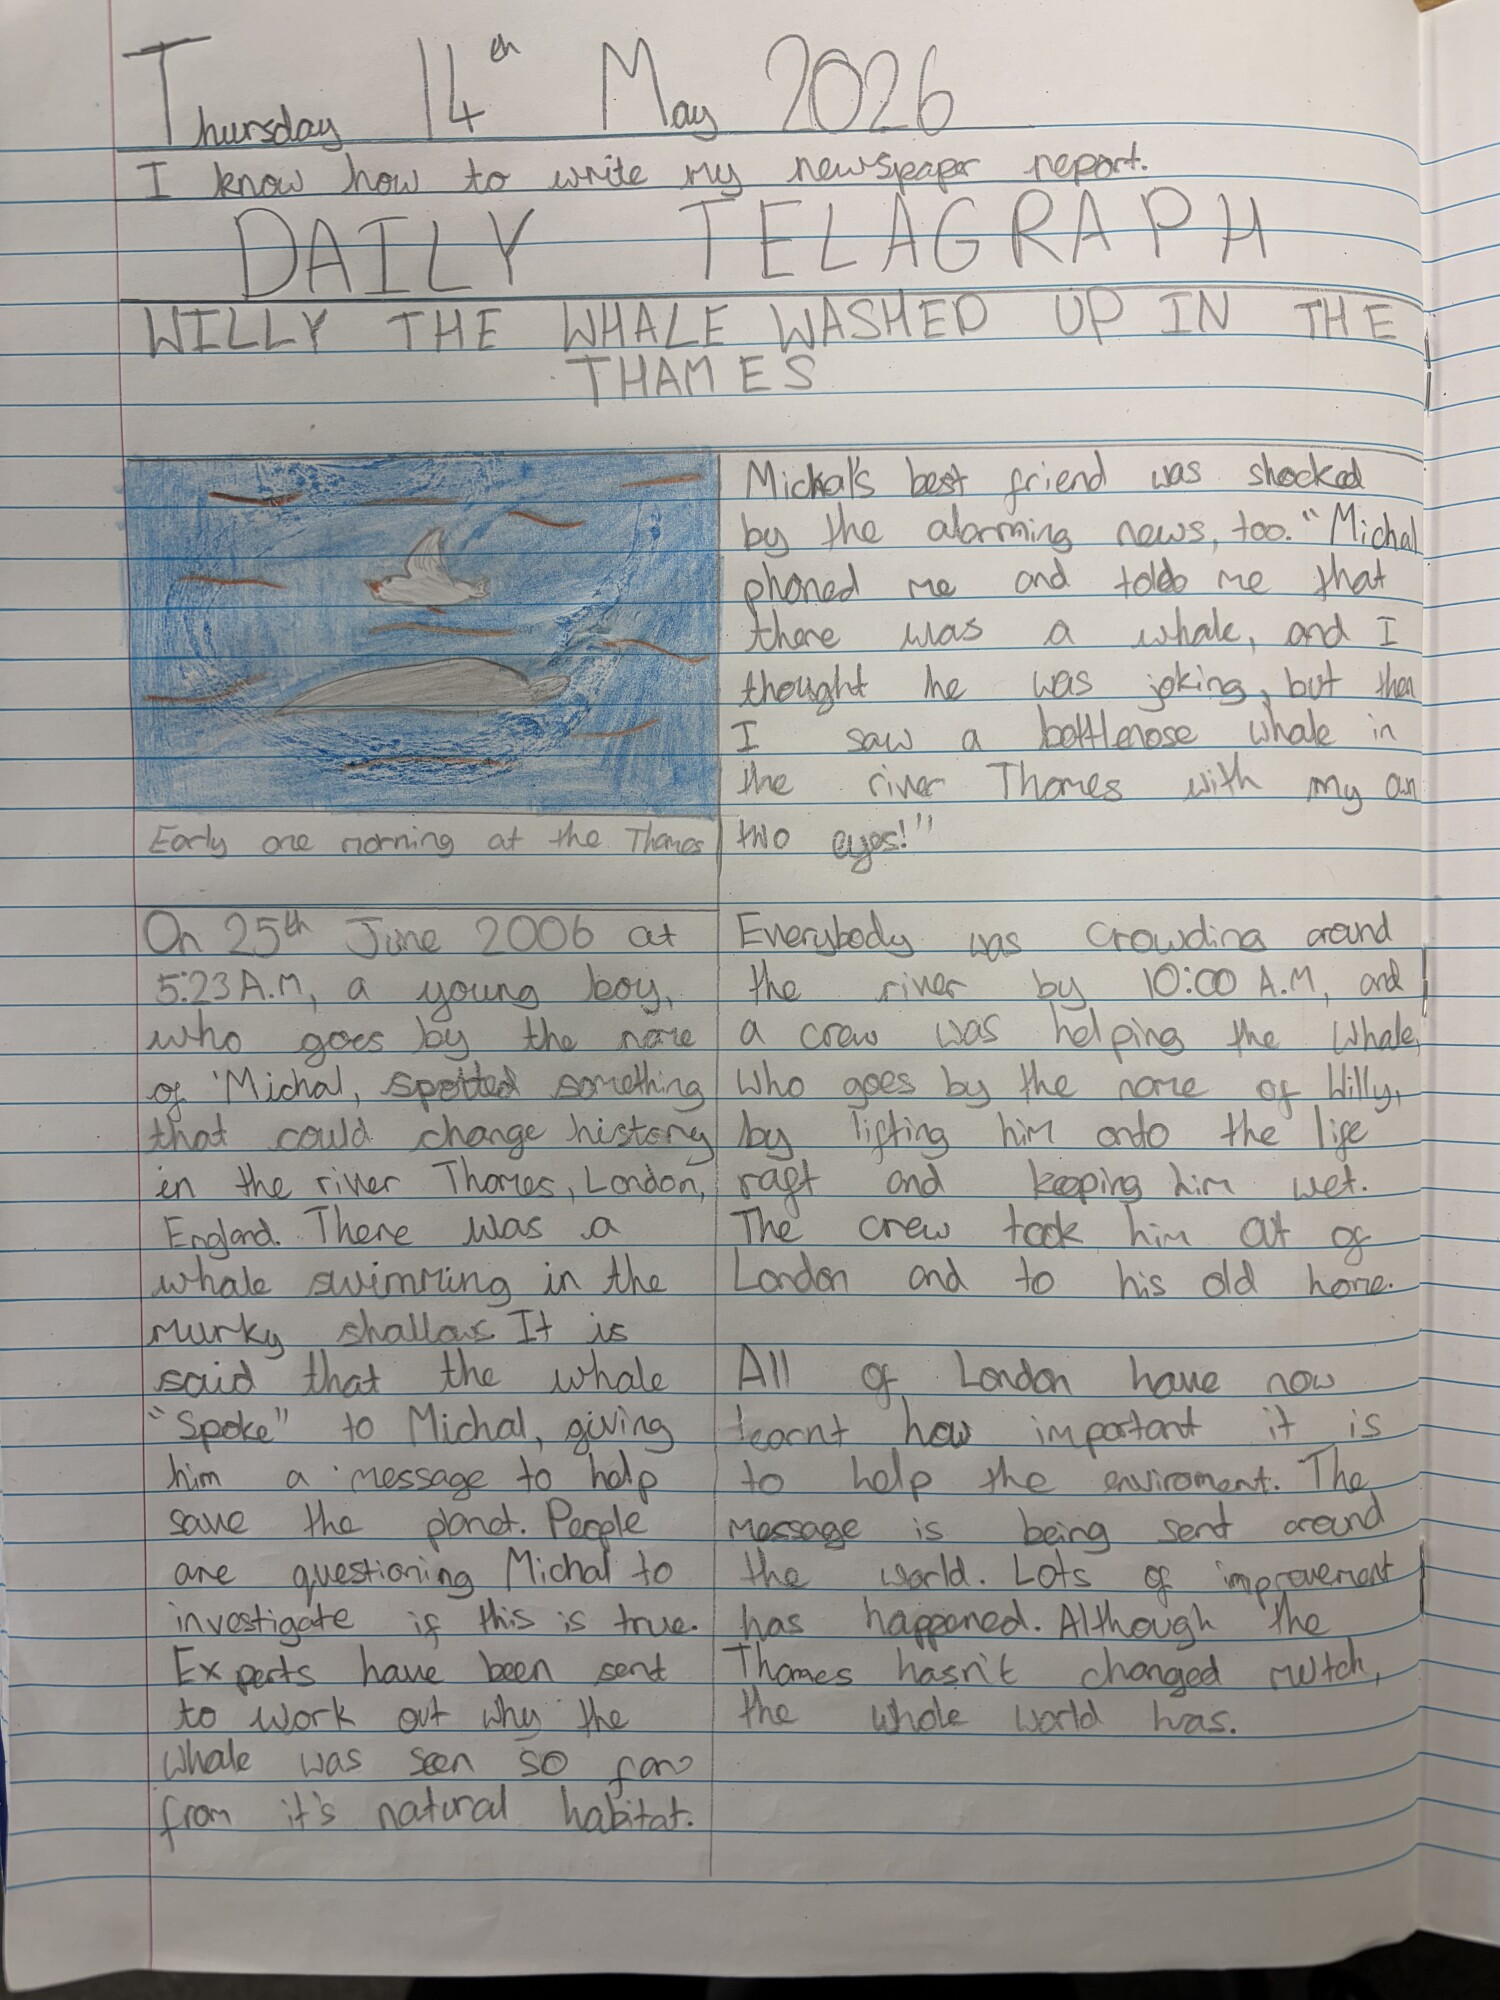 Thursday 14th May 2026
I know how to write my newspaper report.
DAILY TELAGRAPH
WILLY THE WHALE WASHED UP IN THE
THAMES
Early one morning at the Thames
On 25th June 2006 at
5:23A.M, a young boy,
who goes by the name
of Michal, spotted something
that could change history
in the river Thames, London,
England. There was a
whale swimming in the
murky shallows. It is
said that the whale
"Spoke" to Michal, giving
him a message to help
save the planet. People
are questioning Michal to
investigate if this is true.
Experts have been sent
to work out why the
whale was seen so far
from it's natural habitat.
Michal's best friend was shocked
by the alarming news, too. "Michal
phoned me and told me that
there was a whale, and I
thought he was joking, but then
I saw a bottlenose whale in
the river Thames with my on
two eyes!"
Everybody was crowding around
the river by 10:00 A.M, and
a crew was helping the whale,
who goes by the name of Willy,
by lifting him onto the life
raft and keeping him wet.
The crew took him out of
London and to his old home.
All of London have now
learnt how important it is
to help the enviroment. The
message is being sent around
the world. Lots of improvement
has happened. Although the
Thames hasn't changed mutch,
the whole world has.